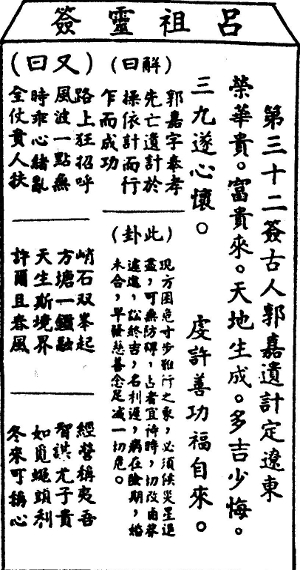 呂祖靈簽
第三十二簽古人郭嘉遺計定遼東
榮華貴。富貴來。天地生成。多吉少悔。
三九遂心懷。虔許善功福自來。
（解曰）
郭嘉字奉孝
先亡遺計於
操依計而行
乍而成功
（此卦）
現方困危寸步難行之象，必須候災星退
盡，可無防碍，占者宜待時，切改南暮
遠處，訟終吉，名利遲，病在險期，婚
未合，早發慈善念足減一切危。
（又曰）
路上狂招呼
風波一點無
時乖心緒亂
全仗貴人扶
峭石双峯起
方塘一鑑融
天生斯境界
許爾且春風
經營稱夷吾
智謀尤子貴
如蝇頭利
冬來可稱心